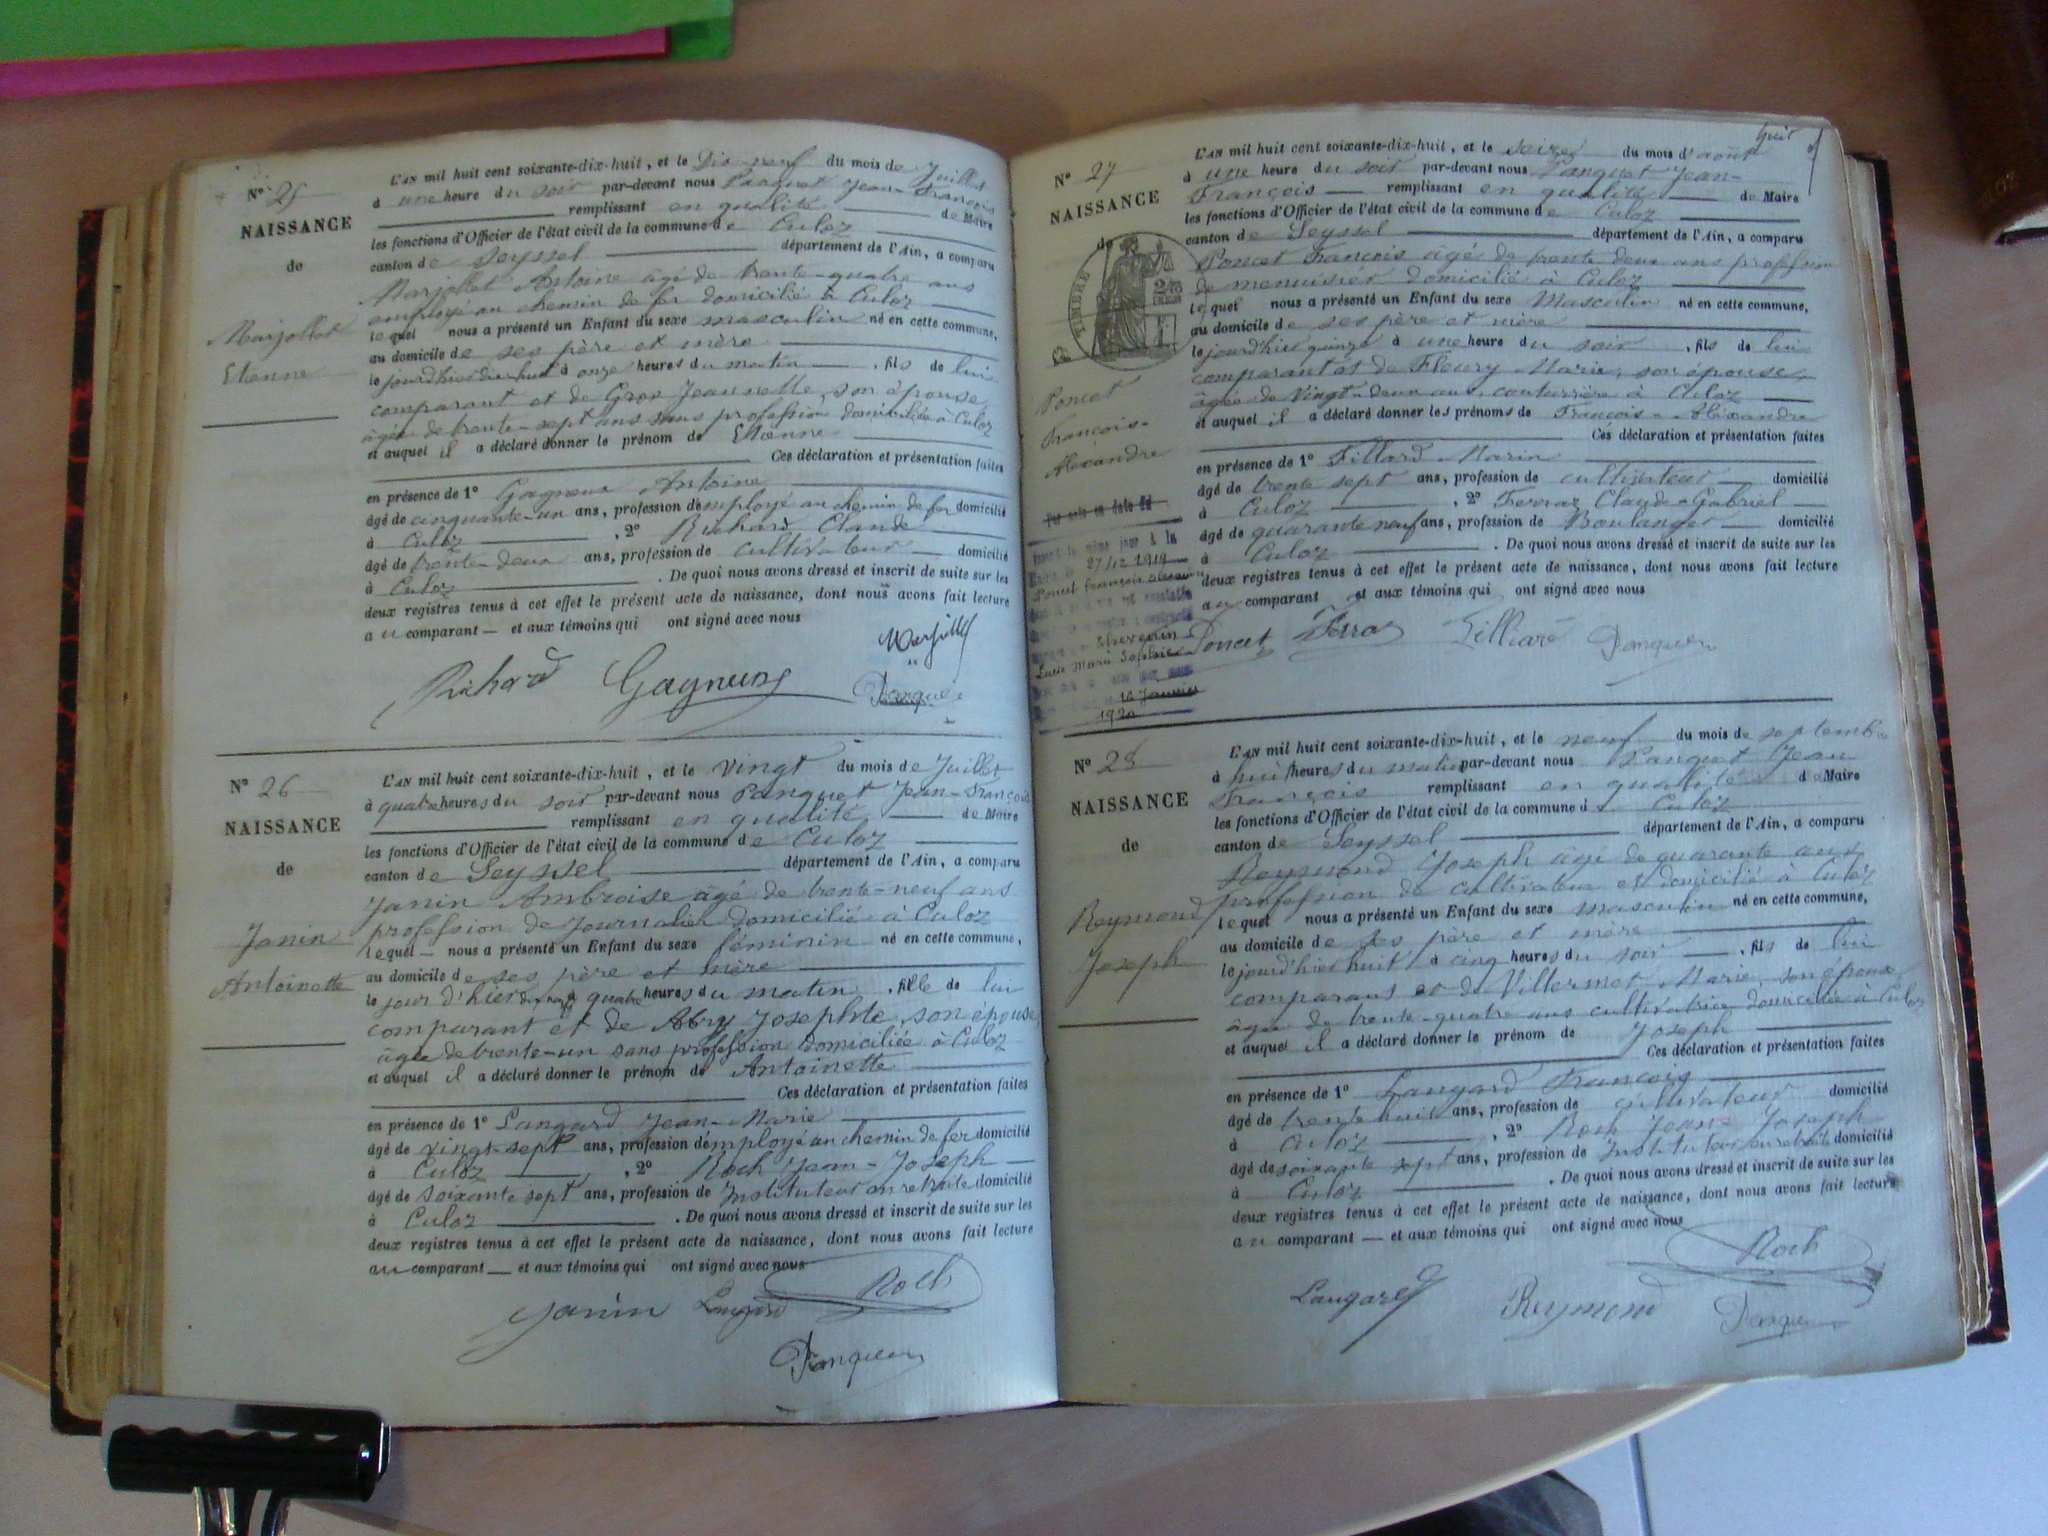 N° 25
NAISSANCE
de
Marjollet
Etienne
L'AN mil huit cent soixante-dix-huit, et le Dix-neuf du mois de Juillet
à une heure du soir par-devant nous Panquet Jean-François
remplissant en qualité de Maire
les fonctions d'Officier de l'état civil de la commune de Culoz
canton de Seyssel département de l'Ain, a comparu
Marjollet Antoine âgé de trente-quatre ans
employé au chemin de fer domicilié à Culoz
lequel nous a présenté un Enfant du sexe masculin né en cette commune,
au domicile de ses père et mère
le jourd'hier dix-huit à onze heures du matin, fils de lui
comparant et de Gros Jeannette, son épouse
âgée de trente-sept ans sans profession domiciliée à Culoz
et auquel il a déclaré donner le prénom de Etienne
Ces déclaration et présentation faites
en présence de 1° Gagneux Antoine
âgé de cinquante-un ans, profession d'employé au chemin de fer domicilié
à Culoz, 2° Richard Claude
âgé de trente-deux ans, profession de cultivateur domicilié
à Culoz. De quoi nous avons dressé et inscrit de suite sur les
deux registres tenus à cet effet le présent acte de naissance, dont nous avons fait lecture
au comparant — et aux témoins qui ont signé avec nous
Marjollet
Richard Gagneux Panquet
N° 26
NAISSANCE
de
Janin
Antoinette
L'AN mil huit cent soixante-dix-huit, et le vingt du mois de Juillet
à quatre heures du soir par-devant nous Panquet Jean-François
remplissant en qualité de Maire
les fonctions d'Officier de l'état civil de la commune de Culoz
canton de Seyssel département de l'Ain, a comparu
Janin Ambroise âgé de trente-neuf ans
profession de Journalier domicilié à Culoz
lequel — nous a présenté un Enfant du sexe féminin né en cette commune,
au domicile de ses père et mère
le jour d'hier dix neuf à quatre heures du matin, fille de lui
comparant et de Abry Josephte, son épouse,
âgée de trente-un sans profession domiciliée à Culoz
et auquel il a déclaré donner le prénom de Antoinette
Ces déclaration et présentation faites
en présence de 1° Langard Jean-Marie
âgé de vingt-sept ans, profession d'employé au chemin de fer domicilié
à Culoz, 2° Roch Jean-Joseph
âgé de soixante sept ans, profession de Instituteur en retraite domicilié
à Culoz. De quoi nous avons dressé et inscrit de suite sur les
deux registres tenus à cet effet le présent acte de naissance, dont nous avons fait lecture
au comparant — et aux témoins qui ont signé avec nous
Janin Langard Roch
Panquet
huit
N° 27
NAISSANCE
de
TIMBRE
Poncet
François-
Alexandre
27/12 1919
Poncet François Alexandre
Lucie Marie Sophie
10 Janvier
1920
L'AN mil huit cent soixante-dix-huit, et le seize du mois d'août
à une heure du soir par-devant nous Panquet Jean-
François remplissant en qualité de Maire
les fonctions d'Officier de l'état civil de la commune de Culoz
canton de Seyssel département de l'Ain, a comparu
Poncet François âgé de trente deux ans profession
de menuisier domicilié à Culoz
lequel nous a présenté un Enfant du sexe Masculin né en cette commune,
au domicile de ses père et mère
le jourd'hier quinze à une heure du soir, fils de lui
comparant et de Fleury Marie, son épouse,
âgée de vingt-deux ans, couturière à Culoz
et auquel il a déclaré donner les prénoms de François-Alexandre
Ces déclaration et présentation faites
en présence de 1° Fillard Marin
âgé de trente sept ans, profession de cultivateur domicilié
à Culoz, 2° Ferraz Claude-Gabriel
âgé de quarante neuf ans, profession de Boulanger domicilié
à Culoz. De quoi nous avons dressé et inscrit de suite sur les
deux registres tenus à cet effet le présent acte de naissance, dont nous avons fait lecture
au comparant et aux témoins qui ont signé avec nous
Poncet Ferraz Filliard Panquet
N° 28
NAISSANCE
de
Reymond
Joseph
L'AN mil huit cent soixante-dix-huit, et le neuf du mois de septembre
à huit heures du matin par-devant nous Panquet Jean
François remplissant en qualité de Maire
les fonctions d'Officier de l'état civil de la commune à Culoz
canton de Seyssel département de l'Ain, a comparu
Reymond Joseph âgé de quarante ans
profession de cultivateur et domicilié à Culoz
lequel nous a présenté un Enfant du sexe masculin né en cette commune,
au domicile de ses père et mère
le jourd'hier huit à cinq heures du soir, fils de lui
comparant et de Villermet Marie, son épouse
âgée de trente-quatre ans cultivatrice domiciliée à Culoz
et auquel il a déclaré donner le prénom de Joseph
Ces déclaration et présentation faites
en présence de 1° Langard François
âgé de trente huit ans, profession de cultivateur domicilié
à Culoz, 2° Roch Jean-Joseph
âgé de soixante sept ans, profession de Instituteur en retraite domicilié
à Culoz. De quoi nous avons dressé et inscrit de suite sur les
deux registres tenus à cet effet le présent acte de naissance, dont nous avons fait lecture
au comparant — et aux témoins qui ont signé avec nous
Roch
Langard Reymond Panquet